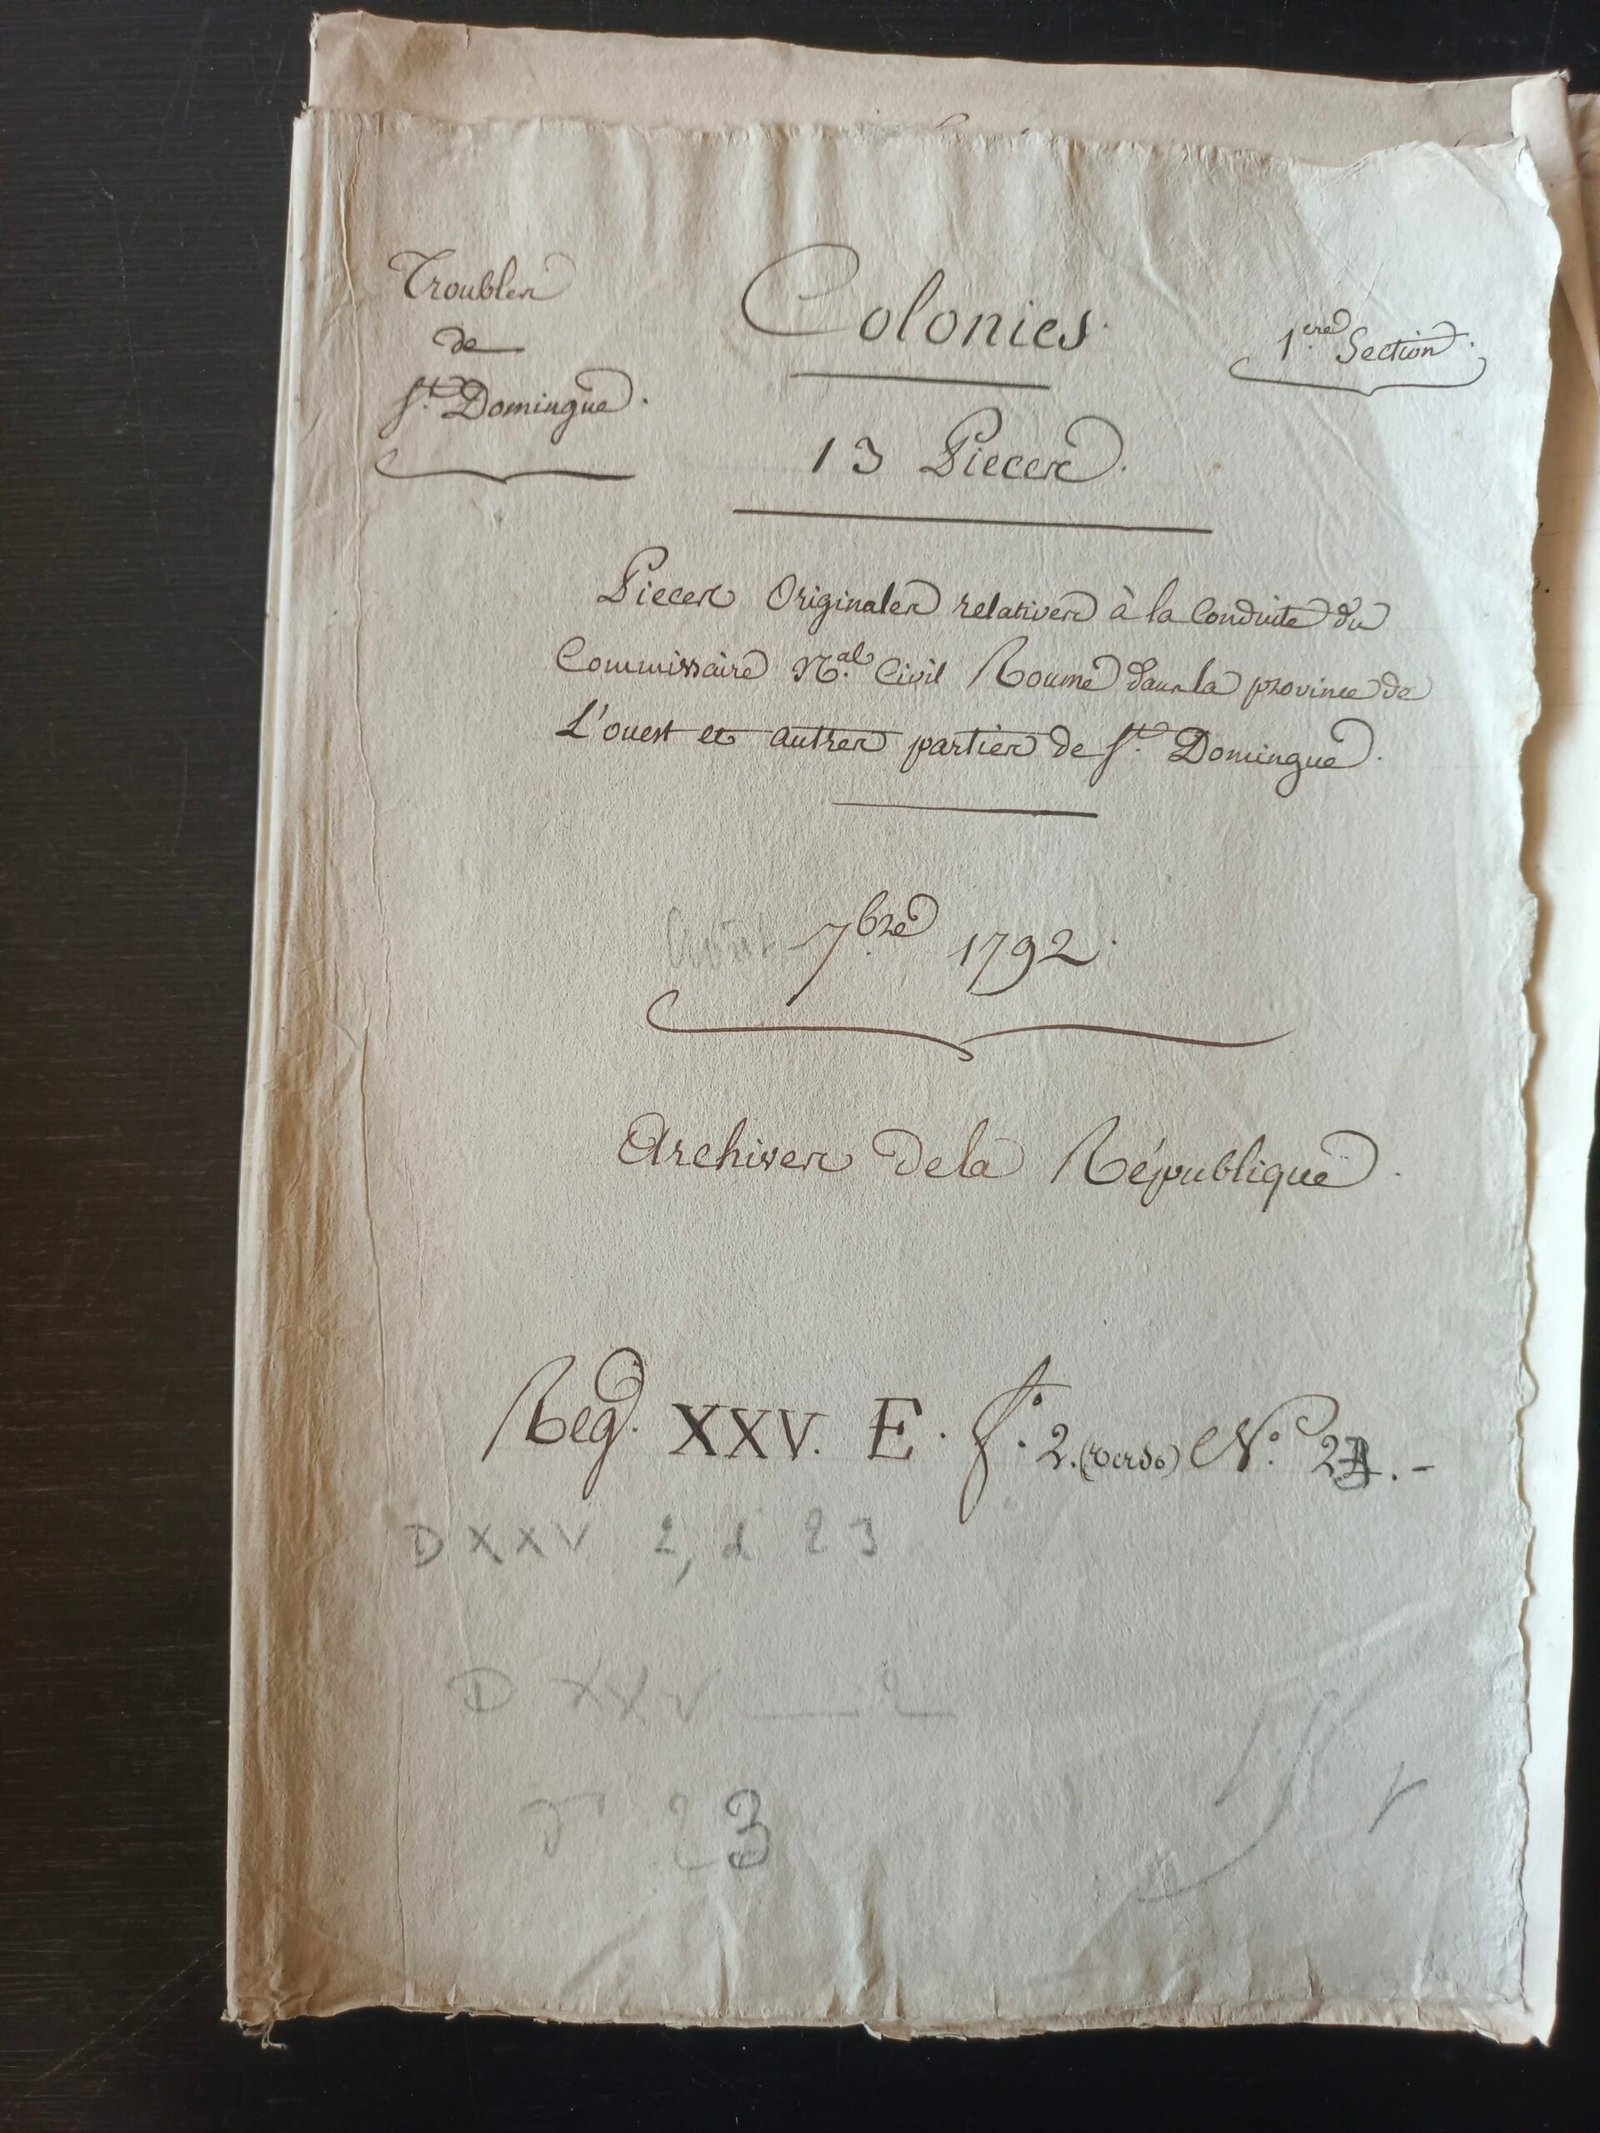 Troubles
de
St. Domingue.
Colonies.
1.ere Section.
13 Pieces.
Pieces Originales relatives à la Conduite du
Commissaire N.al Civil Roume dans la province de
L'ouest et autres parties de St. Domingue.
7.bre 1792.
Archives dela République.
Reg. XXV. E. f.° 2. (verso) N.° 23.-
D XXV 2, d 23
D XXV 2
23